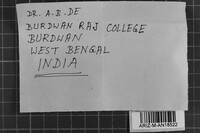 DR. A.B.DE
BURDWAN RAJ COLLEGE
BURDWAN
WEST BENGAL
INDIA
ARIZ-M-AN18522